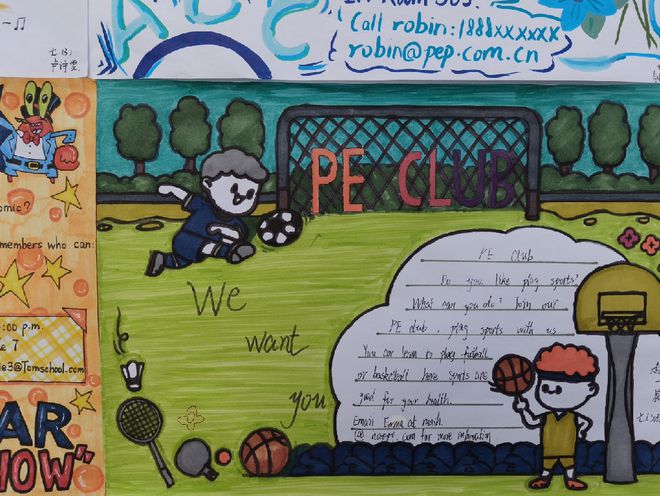 In Room 303.
Call robin:1888xxxxxx
robin@pep.com.cn
七(5)
omic?
members who can
:00 p.m.
e 7
ie3@Tomschool.com
AR
HOW"
PE CLUB
We
want
you
PE Club
Do you like play sports?
What can you do? Join our
PE club, play sports with us.
You can learn to play football
or basketball here sports are
good for your health.
Email Emma at
for more information